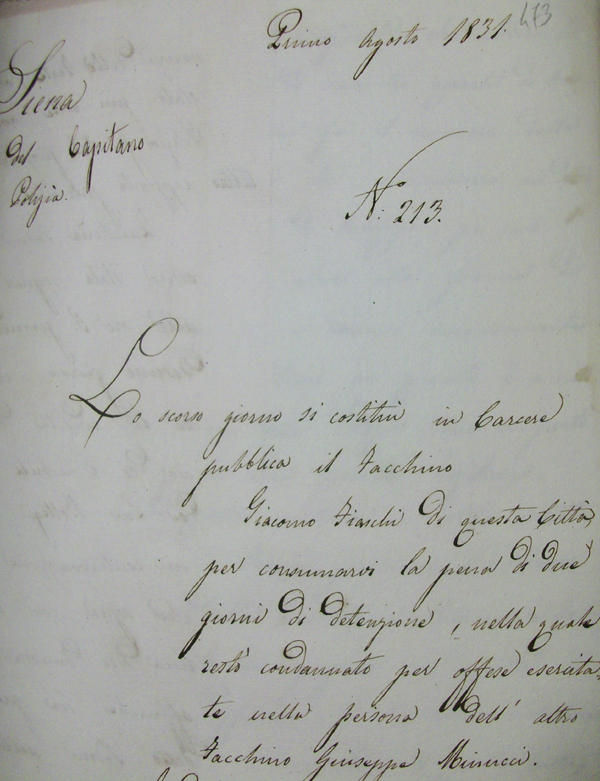 473
Primo Agosto 1831.
Siena
del Capitano
Polizia.
N.º 213.
Lo scorso giorno si costituì in Carcere
pubblica il Facchino
Giacomo Fiaschi di questa Città,
per consumarvi la pena di due
giorni di detenzione, nella quale
restò condannato per offese esercita-
te nella persona dell' altro
Facchino Giuseppe Minucci.